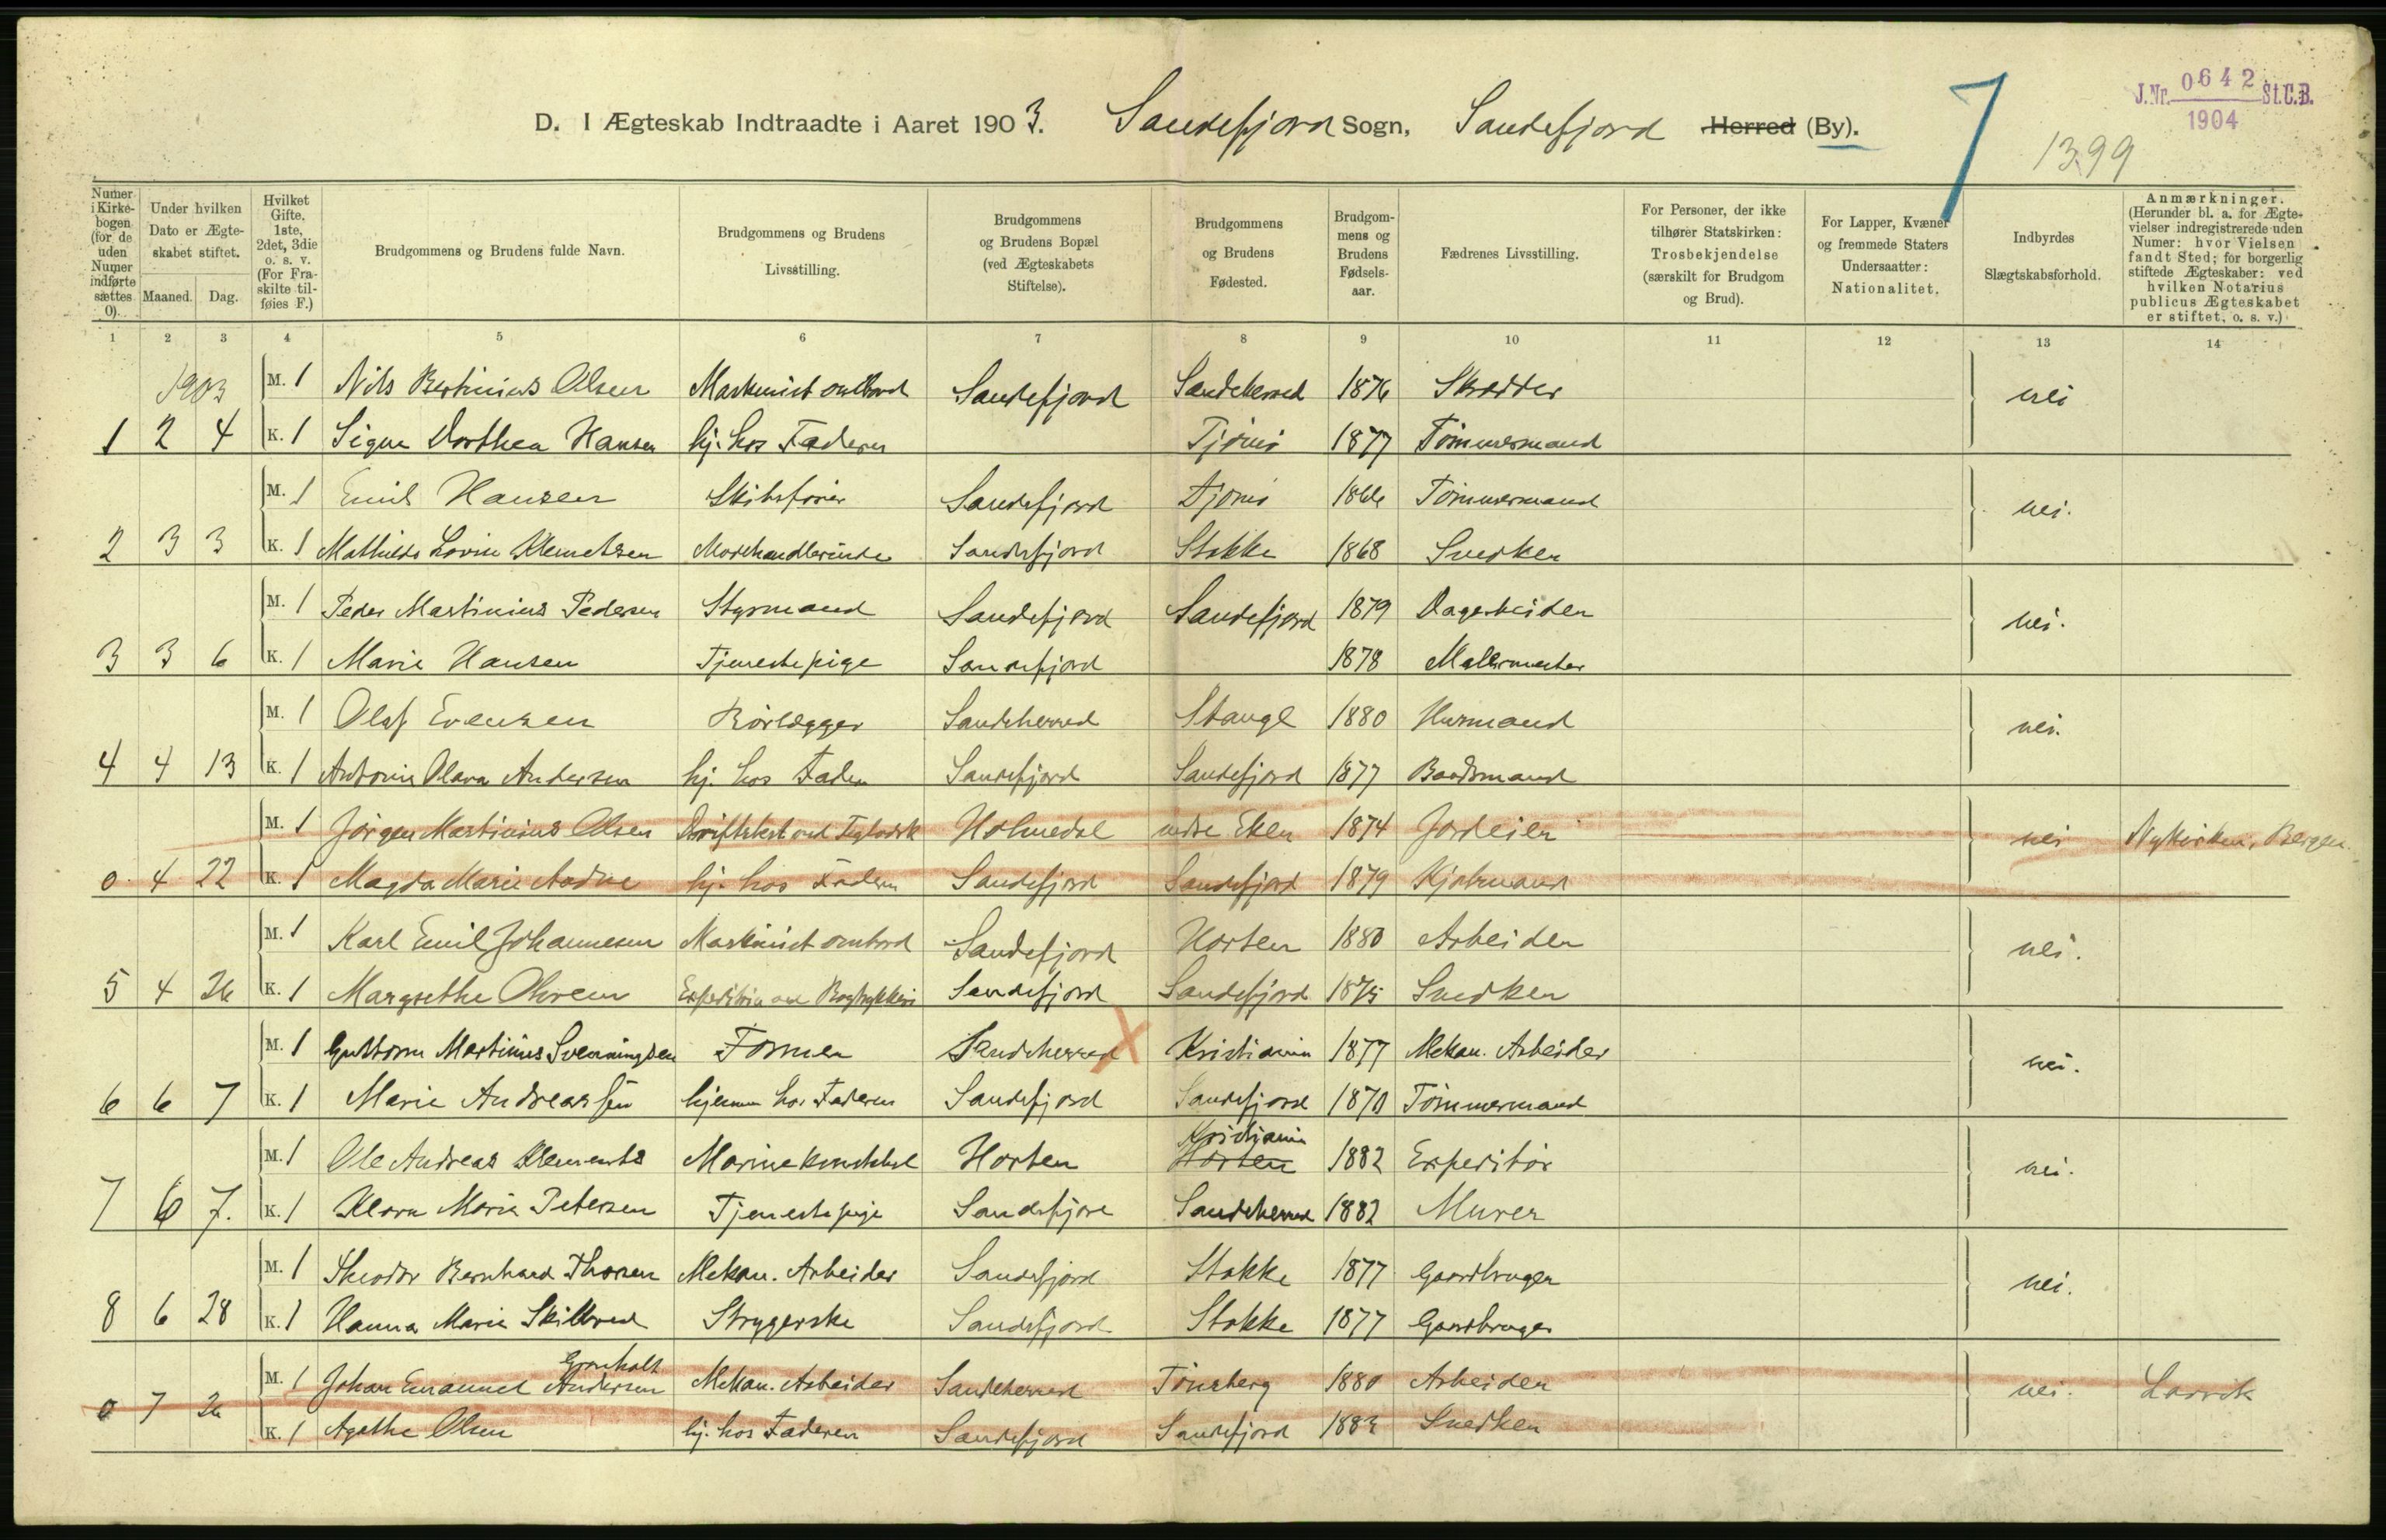 J.Nr. 0642 St.C.B.
1904
1399
7
D. I Ægteskab Indtraadte i Aaret 1903. Sandefjord Sogn, Sandefjord Herred (By).
Numer i Kirkebogen (for de uden Numer indførte sættes 0).
Under hvilken Dato er Ægteskabet stiftet.
Maaned. Dag.
Hvilket Gifte, 1ste, 2det, 3die o. s. v. (For Fraskilte tilføies F.)
Brudgommens og Brudens fulde Navn.
Brudgommens og Brudens Livsstilling.
Brudgommens og Brudens Bopæl (ved Ægteskabets Stiftelse).
Brudgommens og Brudens Fødested.
Brudgommens og Brudens Fødselsaar.
Fædrenes Livsstilling.
For Personer, der ikke tilhører Statskirken: Trosbekjendelse (særskilt for Brudgom og Brud).
For Lapper, Kvæner og fremmede Staters Undersaatter: Nationalitet.
Indbyrdes Slægtskabsforhold.
Anmærkninger. (Herunder bl. a. for Ægtevielser indregistrerede uden Numer: hvor Vielsen fandt Sted; for borgerlig stiftede Ægteskaber: ved hvilken Notarius publicus Ægteskabet er stiftet, o. s. v.)
1 2 3 4 5 6 7 8 9 10 11 12 13 14
1903 M. 1 Nils Bertinius Olsen Maskinist ombord Sandefjord Sandeherred 1876 Skrædder nei
1 2 4 K. 1 Signe Dorthea Hansen hj. hos Faderen Tjømø 1877 Tømmermand
M. 1 Emil Hansen Skibsfører Sandefjord Tjømø 1866 Tømmermand nei.
2 3 3 K. 1 Mathilde Lovise Klemetsen Modehandlerinde Sandefjord Stokke 1868 Snedker
M. 1 Peder Martinius Pedersen Styrmand Sandefjord Sandefjord 1879 Dagarbeider nei.
3 3 6 K. 1 Marie Hansen Tjenestepige Sandefjord 1878 Malermester
M. 1 Olaf Evensen Rørlægger Sandeherred Stange 1880 Husmand nei.
4 4 13 K. 1 Antonie Olava Andersen hj. hos Faden Sandefjord Sandefjord 1877 Baadsmand
M. 1 Jørgen Martinius Olsen Holmedal indre Eken 1874 Jordeier nei Nykirken, Bergen
0 4 22 K. 1 Magda Marie hj. hos Faderen Sandefjord Sandefjord 1879 Kjøbmand
M. 1 Karl Emil Johannesen Maskinist ombord Sandefjord Horten 1880 Arbeider nei.
5 4 26 K. 1 Margrethe Ohren Sandefjord Sandefjord 1875 Snedker
M. 1 Guttorm Martinius Svenningsen Former Sandeherred X Kristiania 1877 Mekan. Arbeider nei.
6 6 7 K. 1 Marie Andreassen hjemme hos Faderen Sandefjord Sandefjord 1870 Tømmermand
Kristiania
M. 1 Ole Andreas Klements Marinekonstabel Horten Horten 1882 Expeditør nei.
7 6 7. K. 1 Klara Marie Petersen Tjenestepige Sandefjord Sandeherred 1882 Murer
M. 1 Theodor Bernhard Thorsen Mekan. Arbeider Sandefjord Stokke 1877 Gaardbruger nei.
8 6 28 K. 1 Hanna Marie Skillered Strygerske Sandefjord Stokke 1877 Gaardbruger
Grønholt
M. 1 Johan Emanuel Andersen Mekan. Arbeider Sandeherred Tønsberg 1880 Arbeider nei. Larvik
0 7 26 K. 1 Agathe Olsen hj. hos Faderen Sandefjord Sandefjord 1883 Snedker